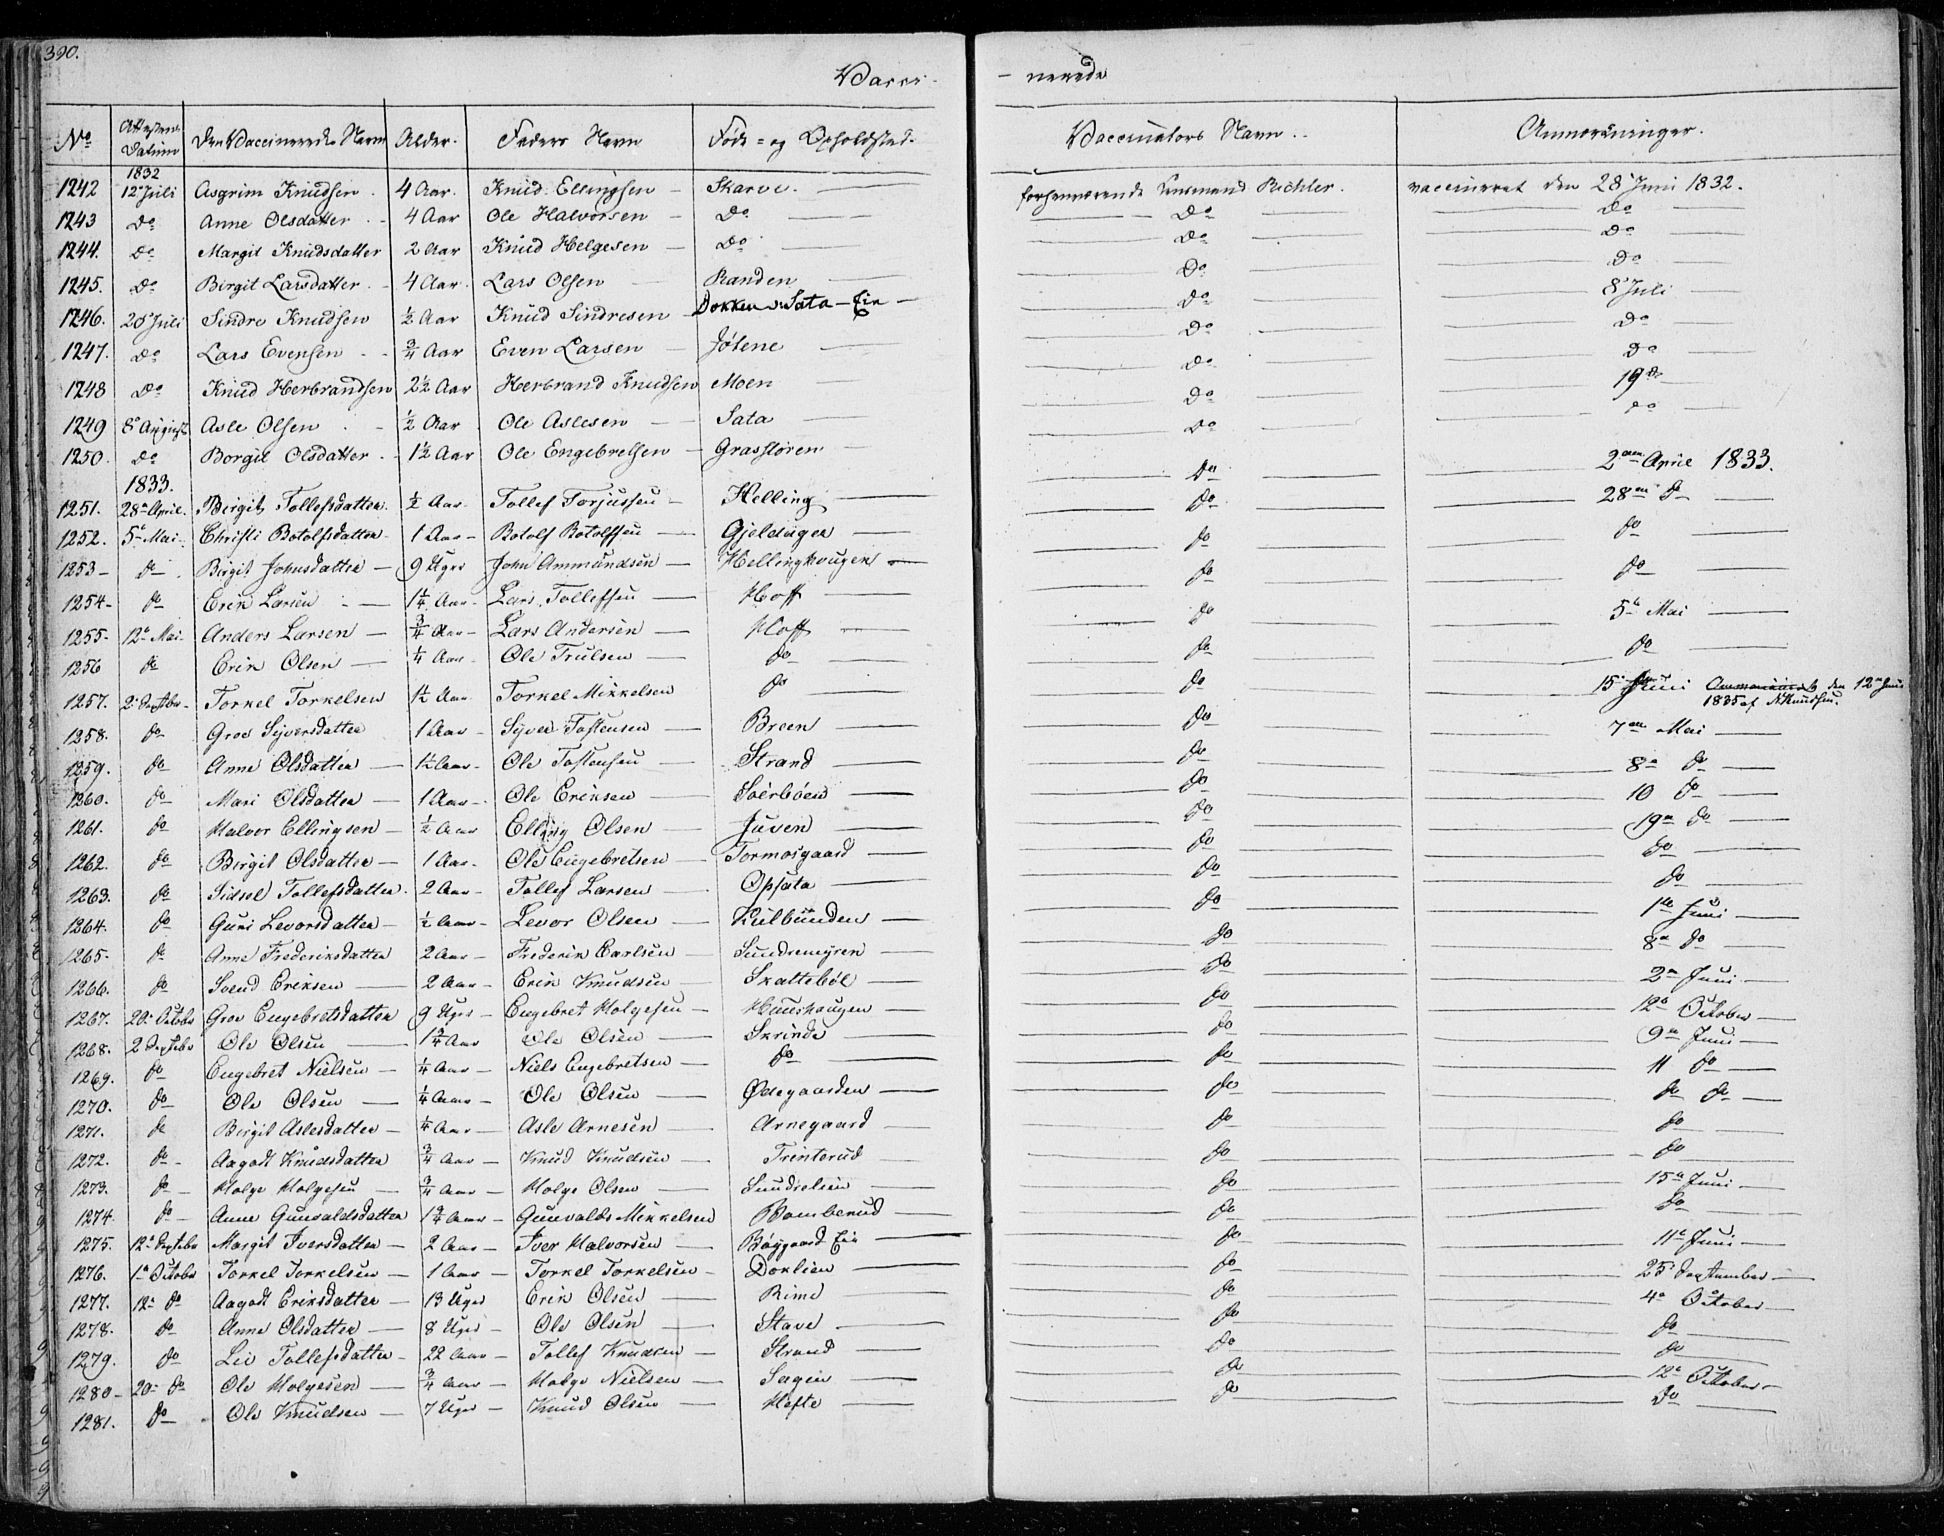 390.
Vacci- - nerede
No Attestens Datum Den Vaccineredes Navn Alder. Faders Navn Føde- og Opholdsted. Vaccinators Navn. Anmærkninger.
1832
1242 12te Juli Asgrim Knudsen 4 Aar. Knud Ellingsen Skarve. forhenværende Lensmand Richler. vaccineret den 28 Juni 1832.
1243 Do Anne Olsdatter 4 Aar Ole Halvorsen Do Do Do
1244. Do Margit Knudsdatter 2 Aar Knud Helgesen Do Do Do
1245. Do Birgit Larsdatter 4 Aar. Lars Olsen Randen Do Do
1246. 20 Juli Sindre Knudsen ½ Aar Knud Sindresen Dokken Sata-Eie Do 8 Juli
1247. Do Lars Evensen ¾ Aar Even Larsen Jøtene Do Do
1248 Do Knud Herbrandsen 2½ Aar Herbrand Knudsen Moen Do Do
1249 8de August Asle Olsen ½ Aar Ole Aslesen Sata Do 19de
1250. Do Borgil Olsdatter 1½ Aar Ole Engebretsen Grasstøren Do Do
1833.
1251. 28de April. Birgit Tollefsdatter. ½ Aar Tollef Torjussen Helling Do 2den April 1833.
1252. 5te Mai. Christi Botolfsdatter 1 Aar Botolf Botolfsen Gjeldager do 28de do
1253 do Birgit Johnsdatter 9 Uger John Ammundsen Hellinghaugen do do
1254 do Erik Larsen 1¼ Aar Lars Tollefsen Hoff do do
1255 12te Mai Anders Larsen ¾ Aar Lars Andersen Hoff do 5te Mai
1256 do Erik Olsen ¼ Aar Ole Trulsen do do do
1257. 2 Septbr Torkel Torkelsen 1½ Aar Torkel Mikkelsen do do 15 Juni den 12te Juni
1835 af N Knudsen.
1258. do Groe Syversdatter 1 Aar Syver Tostensen Breen do 7de Mai
1259. do Anne Olsdatter 1½ Aar Ole Tostensen Strand do 8de do
1260. do Mari Olsdatter 1 Aar Ole Eriksen Soerbøen do 10 do
1261. do Halvor Ellingsen ½ Aar Elling Olsen Juven do 19de do
1262. do Birgit Olsdatter 1 Aar Ole Engebretsen Tormosgaard do do
1263. do Sidsel Tollefsdatter 2 Aar Tollef Larsen Opsata do do
1264. do Guri Levorsdatter ½ Aar Levor Olsen Kulbunden do 1ste Juni
1265. do Anne Frederiksdatter 2 Aar Frederik Carlsen Sundremyren do 8de do
1266. do Svend Eriksen 2 Aar Erik Knudsen Skattebøl do 2den Juni
1267. 20de Octobr Groe Engebretsdatter 9 Uger Engebret Holgesen Haushaugen do 12te October
1268. 2 Septebr Ole Olsen 1¾ Aar Ole Olsen Skrinde do 9de Juni
1269. do Engebret Nielsen ¼ Aar Niels Engebretsen do do 11 do
1270. do Ole Olsen ¼ Aar Ole Olsen Ødegaarden do do do
1271. do Birgit Aslesdatter ¼ Aar Asle Arnesen Arnegaard do do
1272. do Aagodt Knudsdatter ¾ Aar Knud Knudsen Trinterud do do
1273. do Holge Holgesen ¾ Aar Holge Olsen Sundrelien do 15de Juni
1274. do Anne Gunvaldsdatter 1¾ Aar Gunvald Mikkelsen Bamberud do do
1275. 12te Septebr Margit Iversdatter 2 Aar Iver Halvorsen Bøygaard Eie do 11te Juni
1276. 1ste Octobr Torkel Torkelsen 1 Aar Torkel Torkelsen Doklien do 25 September
1277. 12te do Aagodt Eriksdatter 13 Uger Erik Olsen Rime do 4de October
1278. do Anne Olsdatter 8 Uger Ole Olsen Stave do do
1279. do Liv Tollefsdatter 22 Aar Tollef Knudsen Strand do do
1280 20de do Ole Holgesen ¾ Aar Holge Nielsen do 12te October
1281. do Ole Knudsen 7 Uger Knud Olsen Hefte do Do